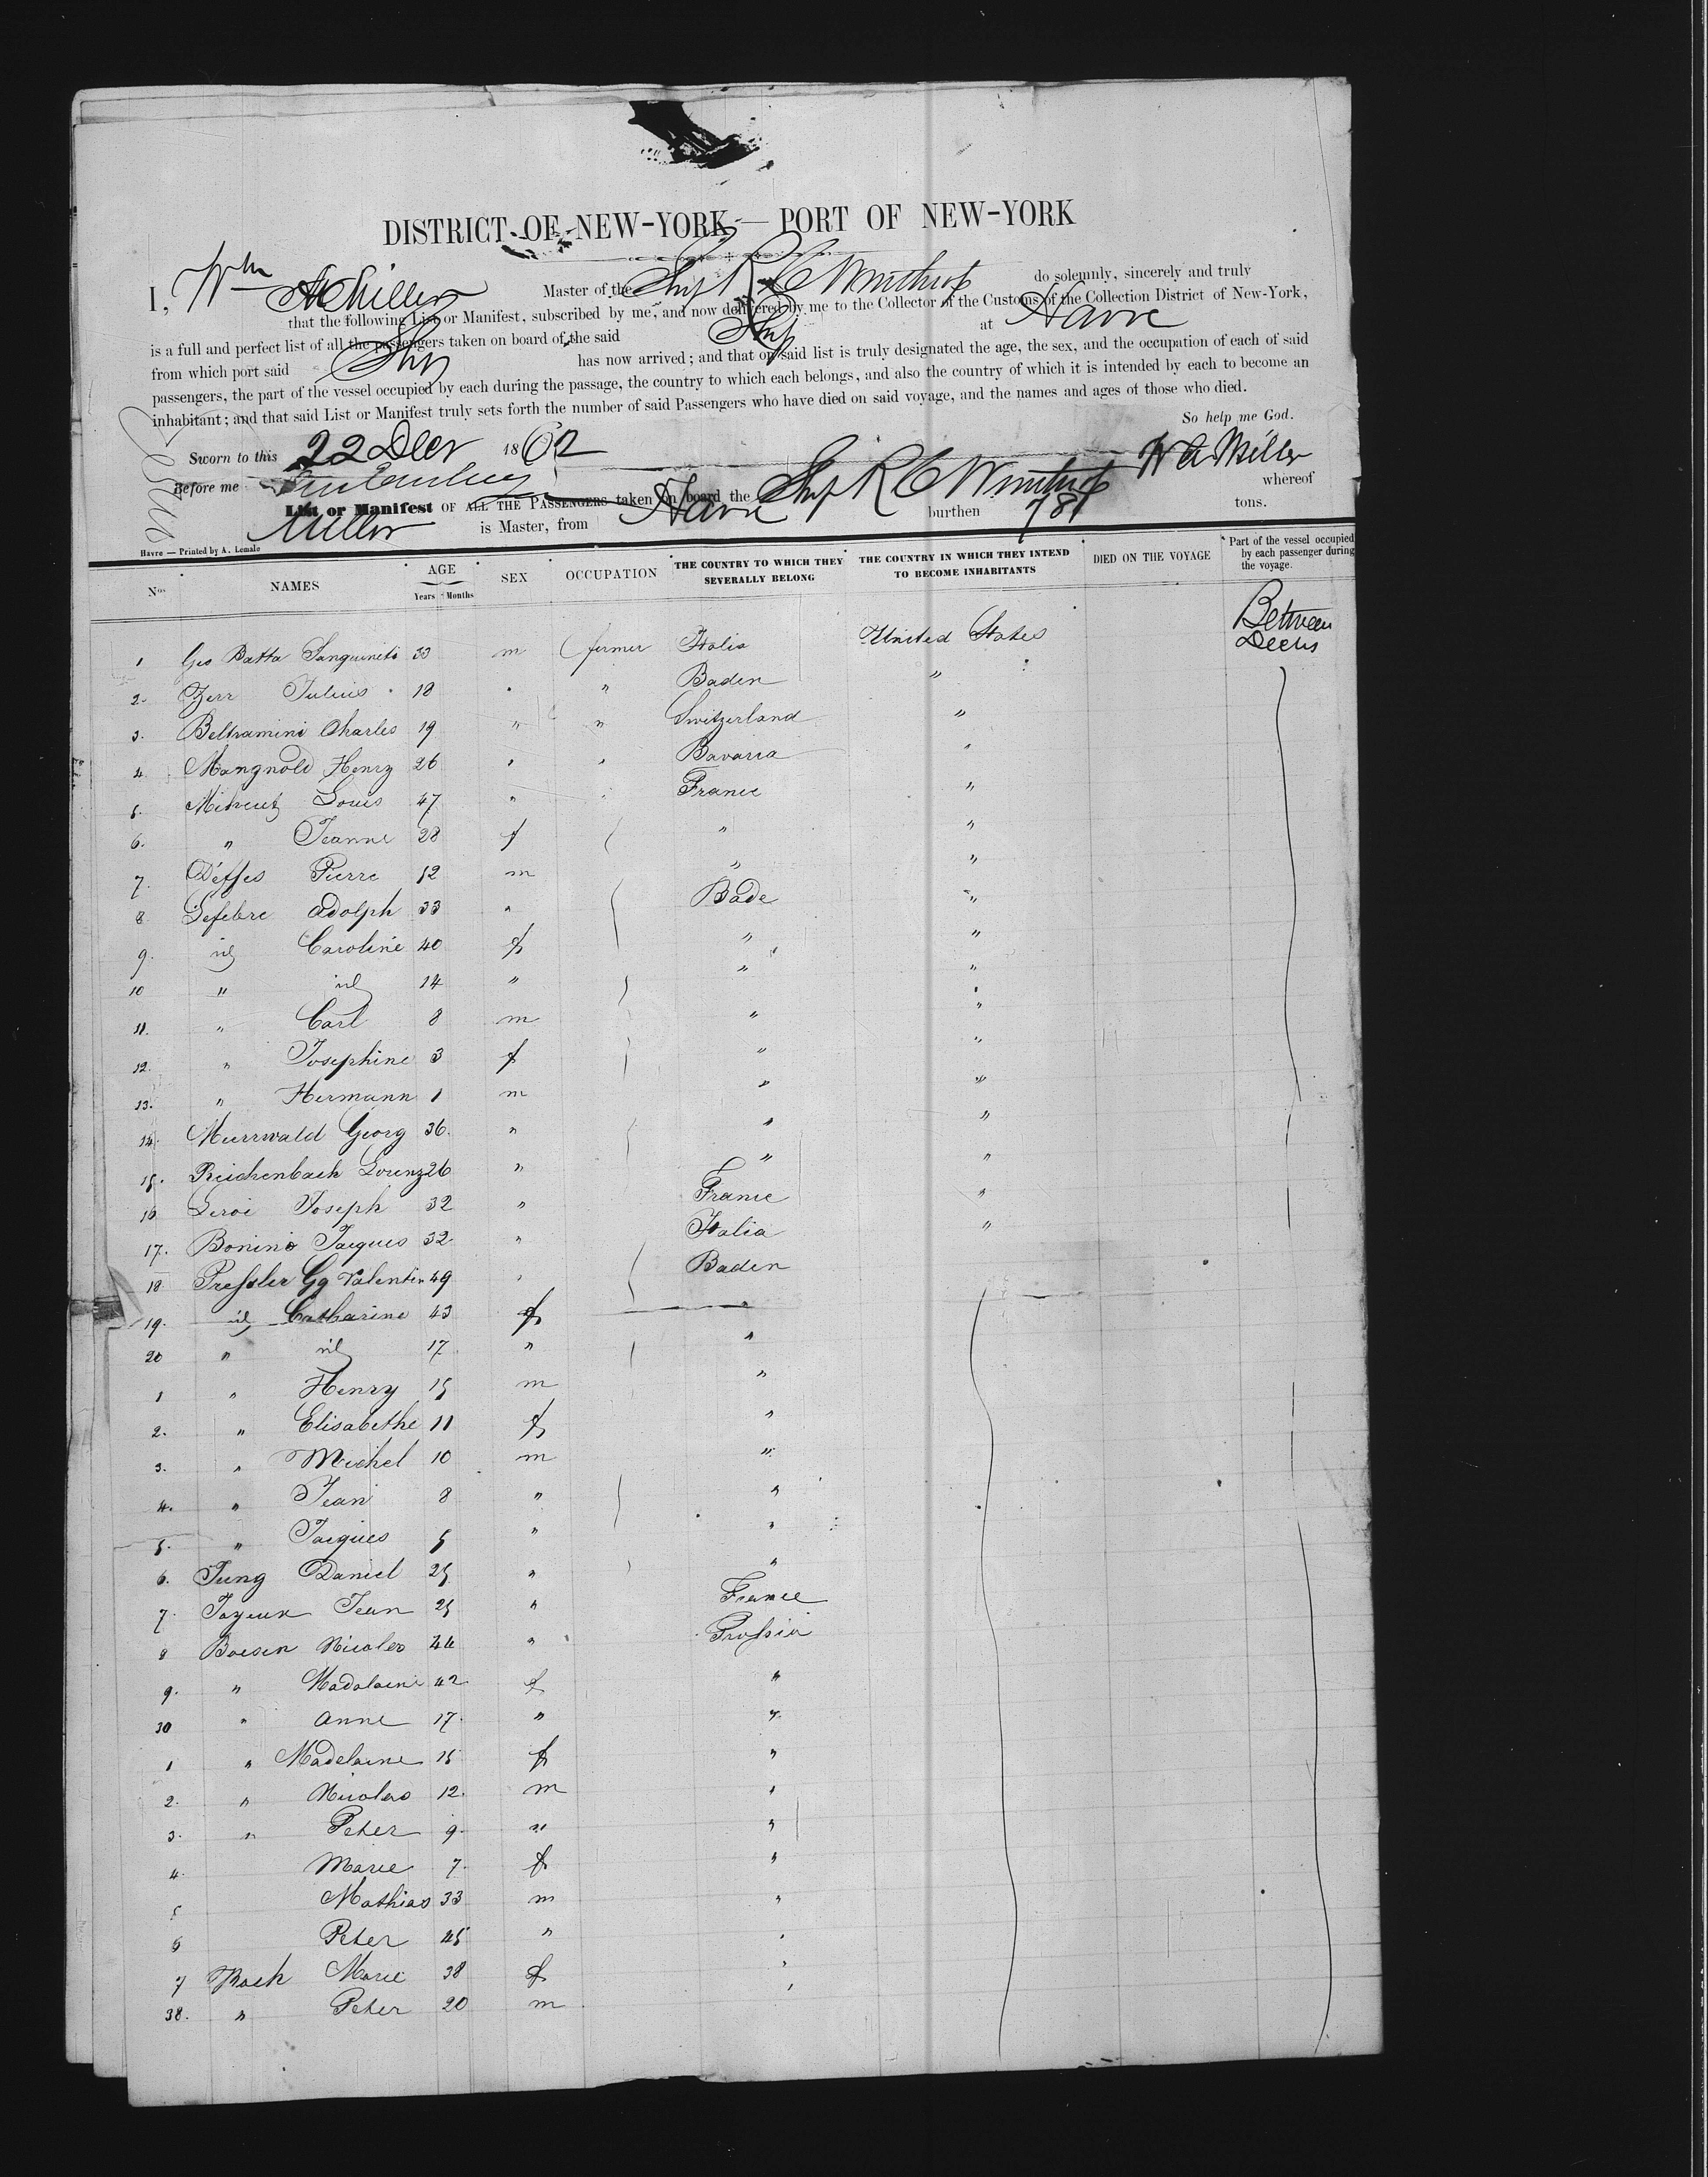 DISTRICT OF NEW-YORK — PORT OF NEW-YORK
I, Wm A Miller Master of the Ship R C Winthrop do solemnly, sincerely and truly
that the following List or Manifest, subscribed by me, and now delivered by me to the Collector of the Customs of the Collection District of New-York,
is a full and perfect list of all the passengers taken on board of the said Ship at Havre
from which port said Ship has now arrived; and that on said list is truly designated the age, the sex, and the occupation of each of said
passengers, the part of the vessel occupied by each during the passage, the country to which each belongs, and also the country of which it is intended by each to become an
inhabitant; and that said List or Manifest truly sets forth the number of said Passengers who have died on said voyage, and the names and ages of those who died.
So help me God.
Sworn to this 22 Decr 1862 W A Miller
Before me
List or Manifest OF ALL THE PASSENGERS taken on board the Ship R C Winthrop whereof
Miller is Master, from Havre burthen 781 tons.
Havre — Printed by A. Lemale
Nos NAMES AGE Years Months SEX OCCUPATION THE COUNTRY TO WHICH THEY SEVERALLY BELONG THE COUNTRY IN WHICH THEY INTEND TO BECOME INHABITANTS DIED ON THE VOYAGE Part of the vessel occupied by each passenger during the voyage.
1 Geo Batta Sanguineti 33 m farmer Italia United States Between Decks
2. Zerr Julius 18 " " Baden "
3. Beltramini Charles 19 " " Switzerland "
4 Mangnold Henry 26 " " Bavaria "
5. Louis 47 " " France "
6. " Jeanne 28 f " "
7. Déffes Pierre 12 m " "
8 Lefebre Adolph 33 " Bade "
9. id Caroline 40 f " "
10 " id 14 " " "
11. " Carl 8 m " "
12. " Josephine 3 f " "
13. " Hermann 1 m " "
14. Murrwald Georg 36. " " "
15. Reichenbach Lorenz 26 " " "
16 Leroi Joseph 32 " France "
17. Bonino Jacques 32 " Italia "
18 Pressler Gg Valentin 49 " Baden
19. id Catharine 43 f "
20 " id 17 " "
1 " Henry 15 m "
2. " Elisabethe 11 f "
3. " Michel 10 m "
4. " Jean 8 " "
5. " Jacques 5 " "
6. Jung Daniel 25 " "
7. Joyeux Jean 25 " France
8 Boesen Nicolas 44 " Prussia
9. " Madalaine 42 f "
30 " Anne 17. " "
1 " Madelaine 15 f "
2. " Nicolas 12. m "
3. " Peter 9. " "
4. Marie 7. f "
5 Mathias 33 m "
6 Peter 45 " "
7 Bach Marie 38 f "
38. " Peter 20 m "